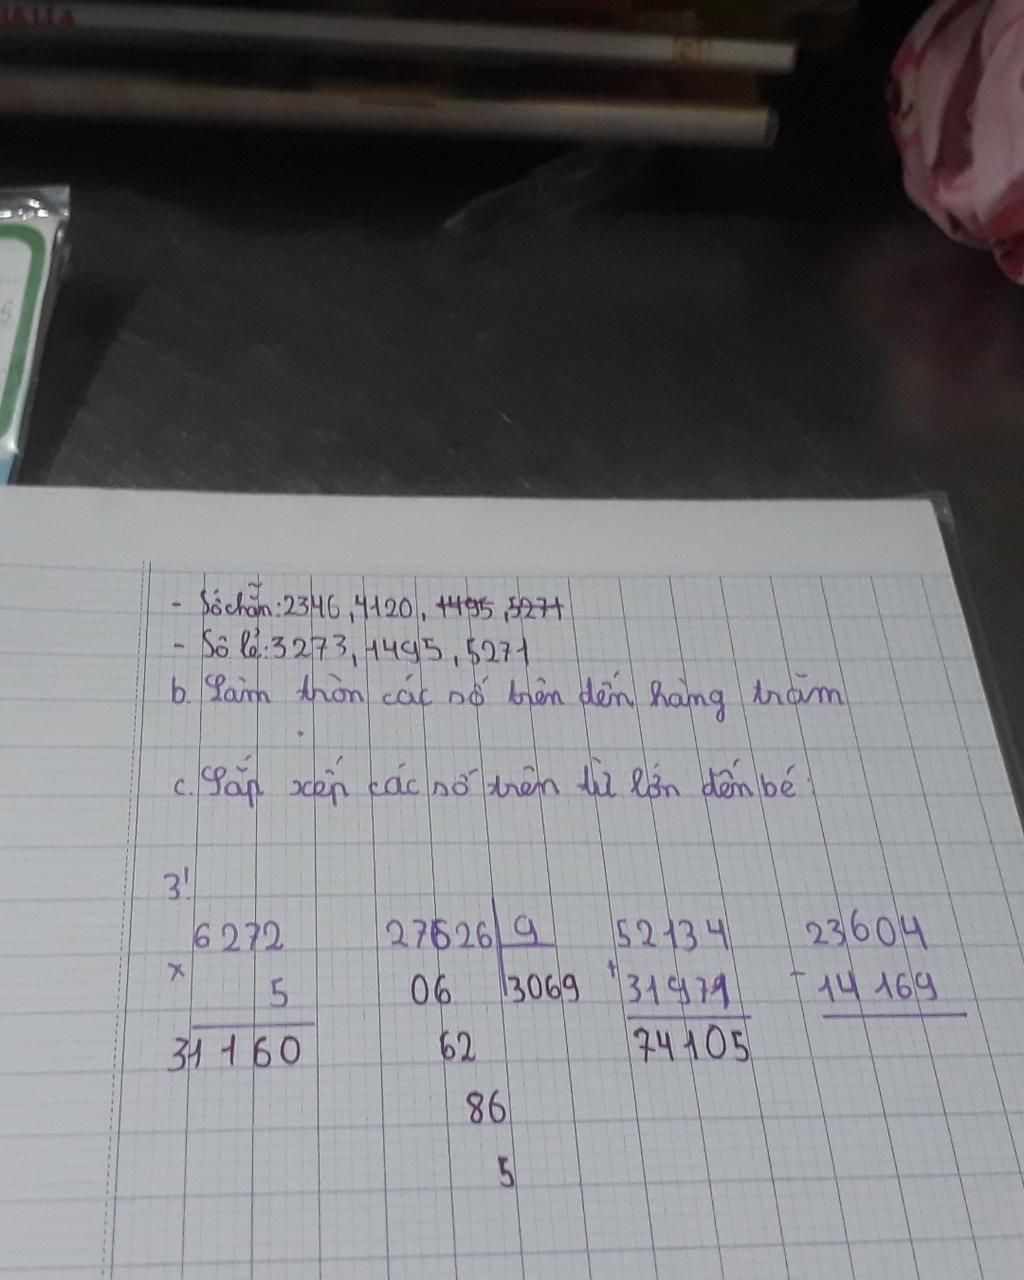 - Số chẵn: 2346, 4120, 1495, 5271
- Số lẻ: 3273, 1495, 5271
b. Làm tròn các số trên đến hàng trăm
c. Sắp xếp các số trên từ lớn đến bé
3!
6272 27626 9 52134 23604
x 5 06 3069 + 31971 - 14169
31160 62 74105
86
5